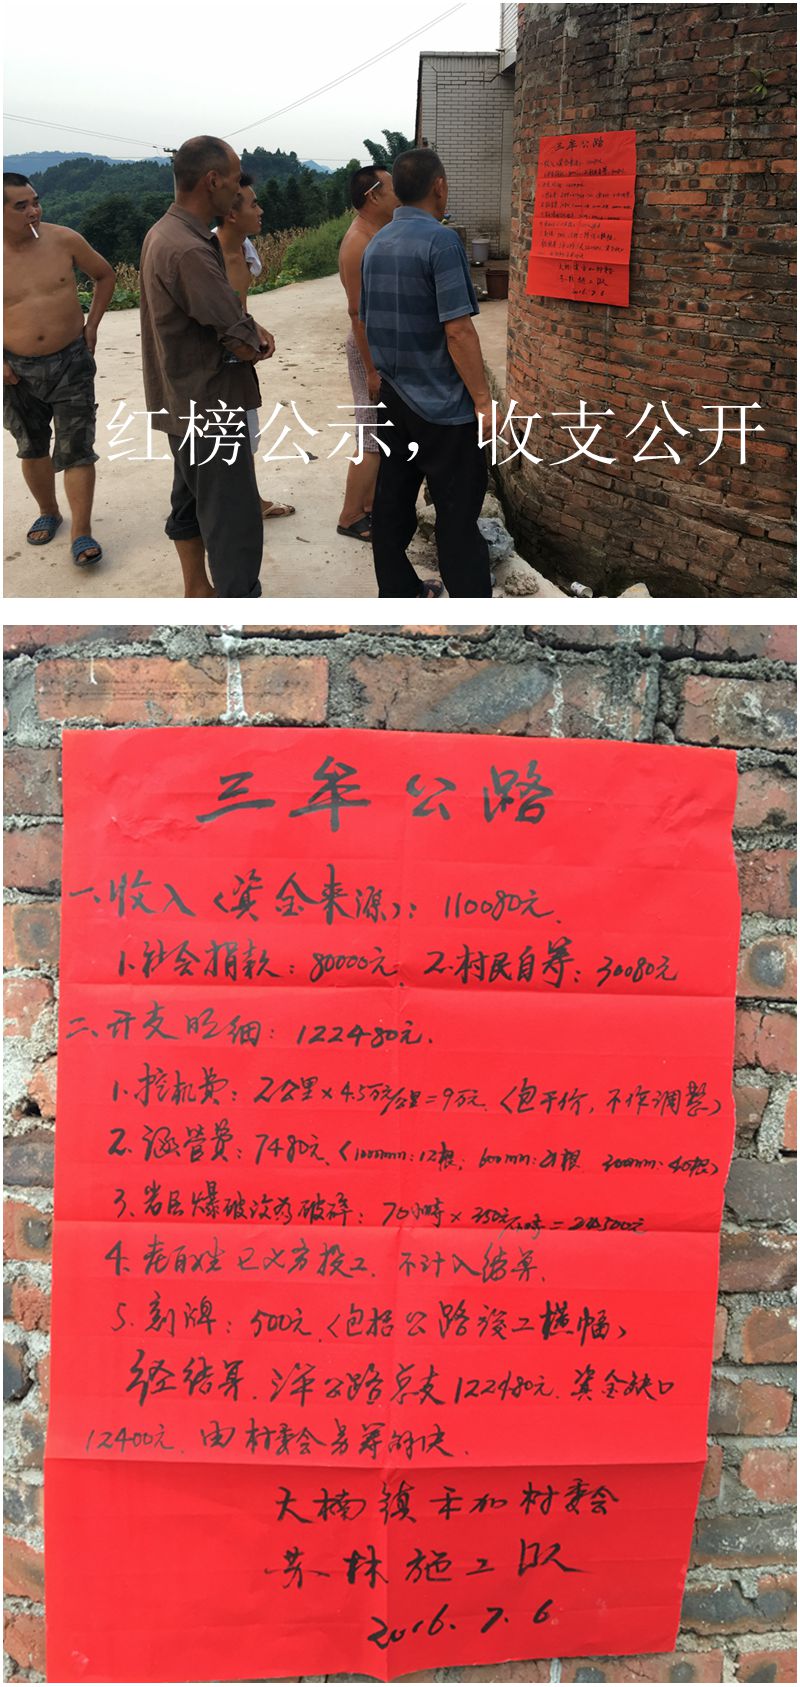 红榜公示，收支公开
三牟公路
一、收入（资金来源）：110080元、
1、社会捐款：80000元 2、村民自筹：30080元
二、开支明细：122480元、
1、挖机费：2公里×4.5万元/公里=9万元（包干价，不作调整）
2、涵管费：7480元（1000mm：12根，600mm：21根 300mm：40根）
3、岩层爆破 破碎：70小时×350元/小时=24500元
4、老百姓 投工、不计入结算、
5、刻牌：500元（包括公路竣工横幅）
经结算、 公路总支122480元、资金缺口
12400元、由村委会另筹解决、
大楠镇禾加村委会
苏林施工队
2016.7.6